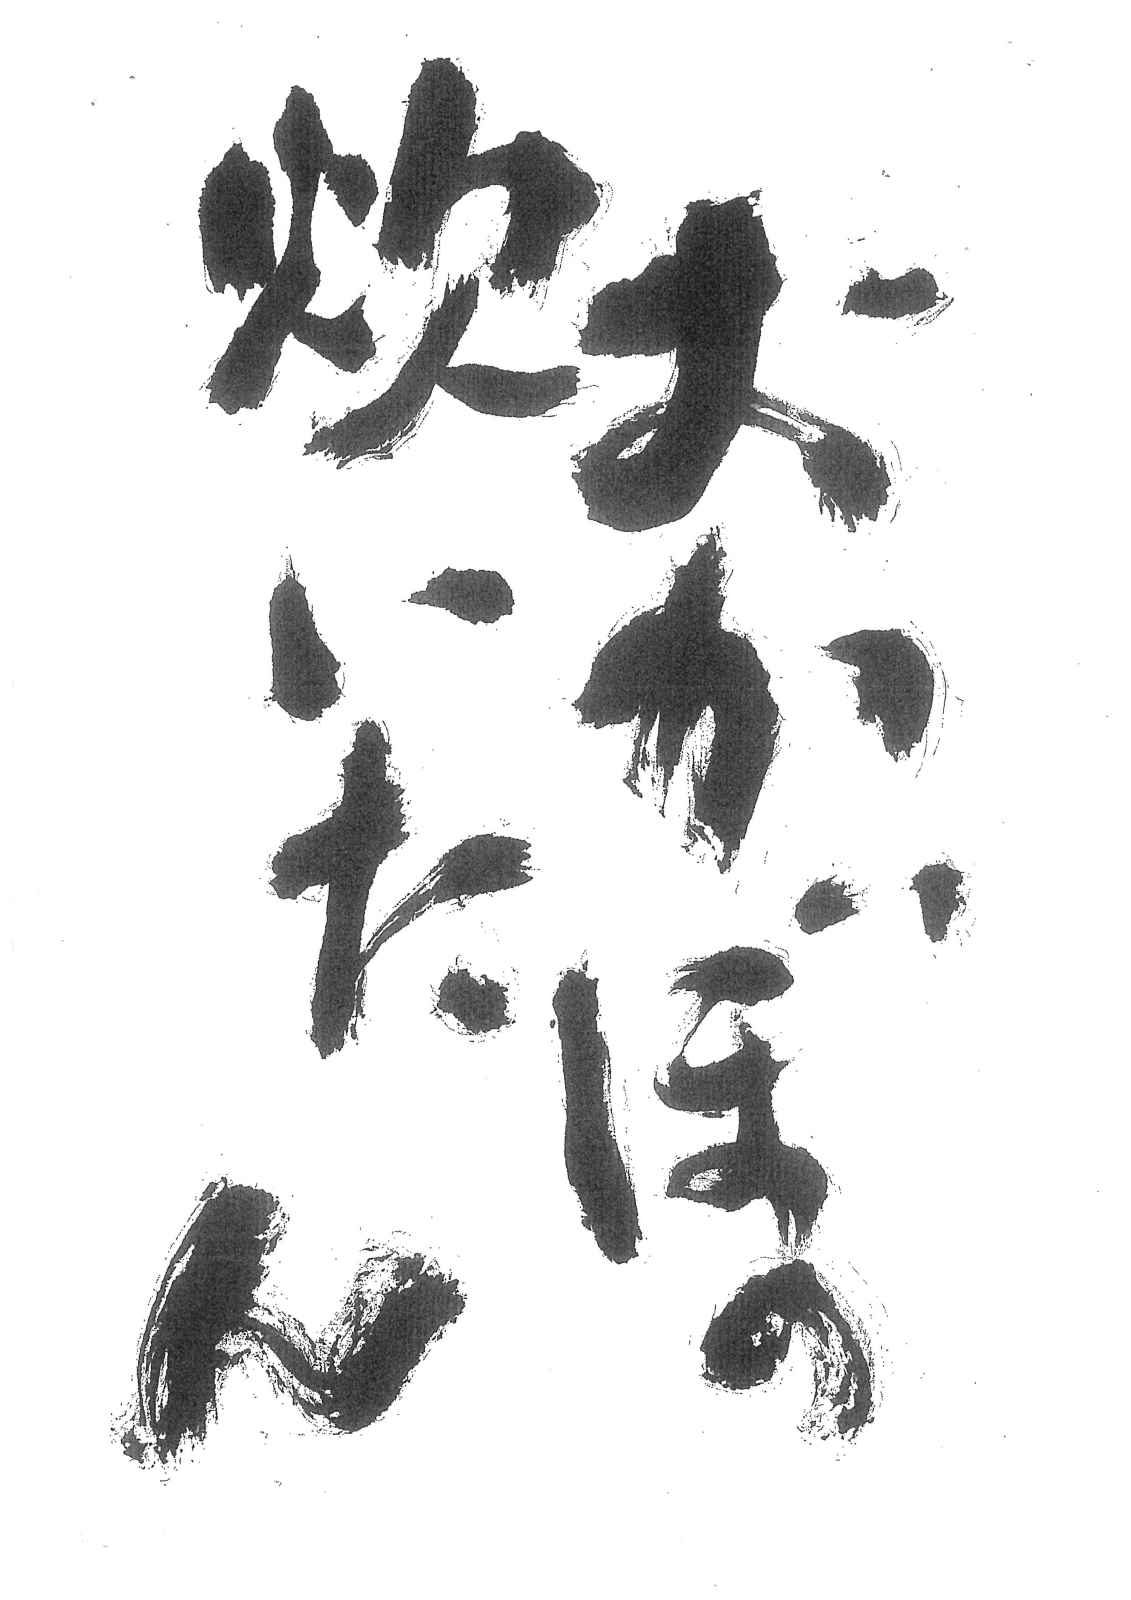 おかぼの
炊いたん